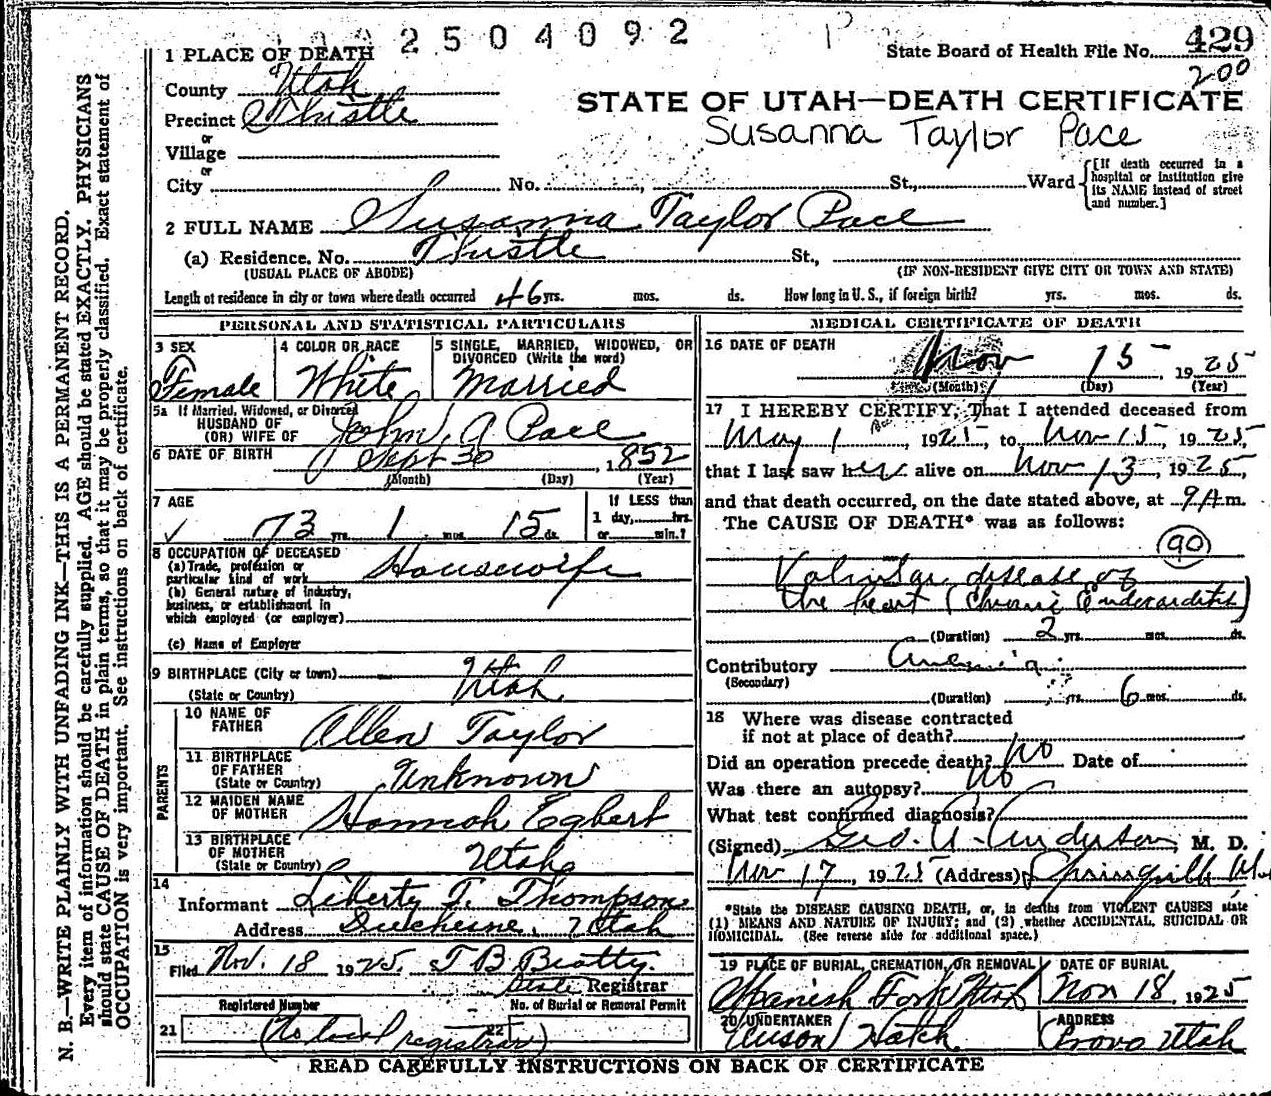 2504092 P
State Board of Health File No. 429
200
1 PLACE OF DEATH
County Utah
Precinct Thistle
or
Village
or
City No. St., Ward {[If death occurred in a hospital or institution give its NAME instead of street and number.]
STATE OF UTAH—DEATH CERTIFICATE
Susanna Taylor Pace
2 FULL NAME Susanna Taylor Pace
(a) Residence. No. Thistle St.,
(USUAL PLACE OF ABODE) (IF NON-RESIDENT GIVE CITY OR TOWN AND STATE)
Length of residence in city or town where death occurred 46 yrs. mos. ds. How long in U. S., if foreign birth? yrs. mos. ds.
PERSONAL AND STATISTICAL PARTICULARS
3 SEX
Female
4 COLOR OR RACE
White
5 SINGLE, MARRIED, WIDOWED, OR
DIVORCED (Write the word)
Married
5a If Married, Widowed, or Divorced
HUSBAND OF
(OR) WIFE OF John A Pace
6 DATE OF BIRTH Sept 30, 1852
(Month) (Day) (Year)
7 AGE
✓ 73 yrs. 1 mos. 15 ds.
If LESS than
1 day, hrs.
or min.?
8 OCCUPATION OF DECEASED
(a) Trade, profession or
particular kind of work Housewife
(b) General nature of industry,
business, or establishment in
which employed (or employer)
(c) Name of Employer
9 BIRTHPLACE (City or town)
(State or Country) Utah
PARENTS
10 NAME OF
FATHER Allen Taylor
11 BIRTHPLACE
OF FATHER
(State or Country) Unknown
12 MAIDEN NAME
OF MOTHER Hannah Egbert
13 BIRTHPLACE
OF MOTHER
(State or Country) Utah
14
Informant Liberty T. Thompson
Address Duchesne, Utah
15
Filed Nov. 18 1925. T B Beatty.
State Registrar
Registered Number No. of Burial or Removal Permit
21 22
(No local registrar)
MEDICAL CERTIFICATE OF DEATH
16 DATE OF DEATH
Nov 15, 1925
(Month) (Day) (Year)
17 I HEREBY CERTIFY, That I attended deceased from
May 1, 1925, to Nov 15, 1925,
that I last saw her alive on Nov 13, 1925,
and that death occurred, on the date stated above, at 9 A m.
The CAUSE OF DEATH* was as follows:
(90)
Valvular disease of
the heart (Chronic Endocarditis)
(Duration) 2 yrs. mos. ds.
Contributory Anemia
(Secondary)
(Duration) yrs. 6 mos. ds.
18 Where was disease contracted
if not at place of death?
Did an operation precede death? No Date of
Was there an autopsy? No
What test confirmed diagnosis?
(Signed) Geo. A. Anderson, M. D.
Nov 17, 1925 (Address) Springville Ut.
*State the DISEASE CAUSING DEATH, or, in deaths from VIOLENT CAUSES state
(1) MEANS AND NATURE OF INJURY; and (2) whether ACCIDENTAL, SUICIDAL OR
HOMICIDAL. (See reverse side for additional space.)
19 PLACE OF BURIAL, CREMATION, OR REMOVAL
Spanish Fork Utah
DATE OF BURIAL
Nov 18 1925
20 UNDERTAKER
Hatch
ADDRESS
Provo Utah
READ CAREFULLY INSTRUCTIONS ON BACK OF CERTIFICATE
N. B.—WRITE PLAINLY WITH UNFADING INK—THIS IS A PERMANENT RECORD.
Every item of information should be carefully supplied. AGE should be stated EXACTLY. PHYSICIANS
should state CAUSE OF DEATH in plain terms, so that it may be properly classified. Exact statement of
OCCUPATION is very important. See instructions on back of certificate.